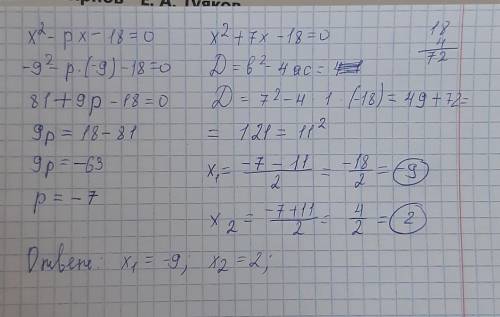 рнов Е. А. Туяков
x² - px - 18 = 0
-9² - p·(-9) - 18 = 0
81 + 9p - 18 = 0
9p = 18 - 81
9p = -63
p = -7
x² + 7x - 18 = 0
D = b² - 4ac =
D = 7² - 4 · 1 · (-18) = 49 + 72 =
= 121 = 11²
x₁ = (-7 - 11)/2 = -18/2 = -9
x₂ = (-7 + 11)/2 = 4/2 = 2
18
4
72
Ответ: x₁ = -9; x₂ = 2;